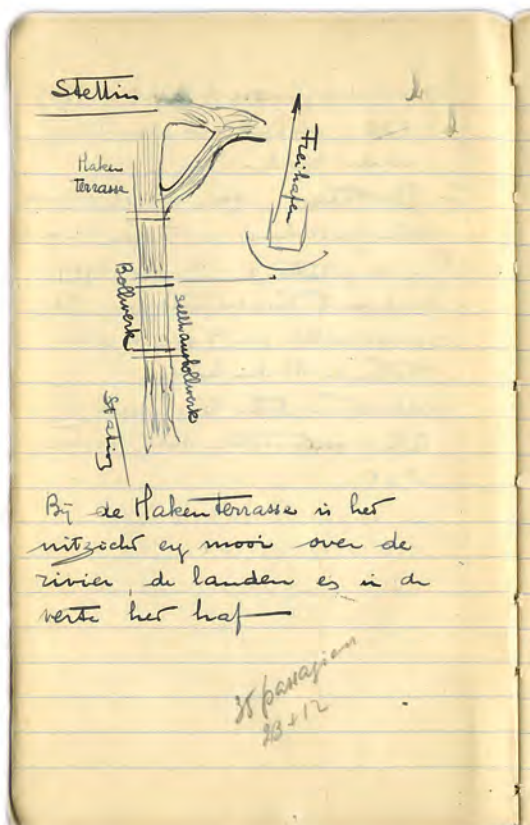 Stettin
Haken
terrasse
Freihafen
Bollwerk
sellhausbollwerk
Station
Bij de Hakenterrasse is het
uitzicht erg mooi over de
rivier, de landen en in de
verte het haf
35 passagiers
23 + 12